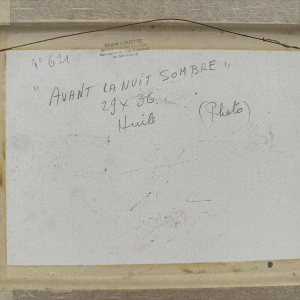 N° 621
" AVANT LA NUIT SOMBRE "
29 x 36
Huile (Photo)